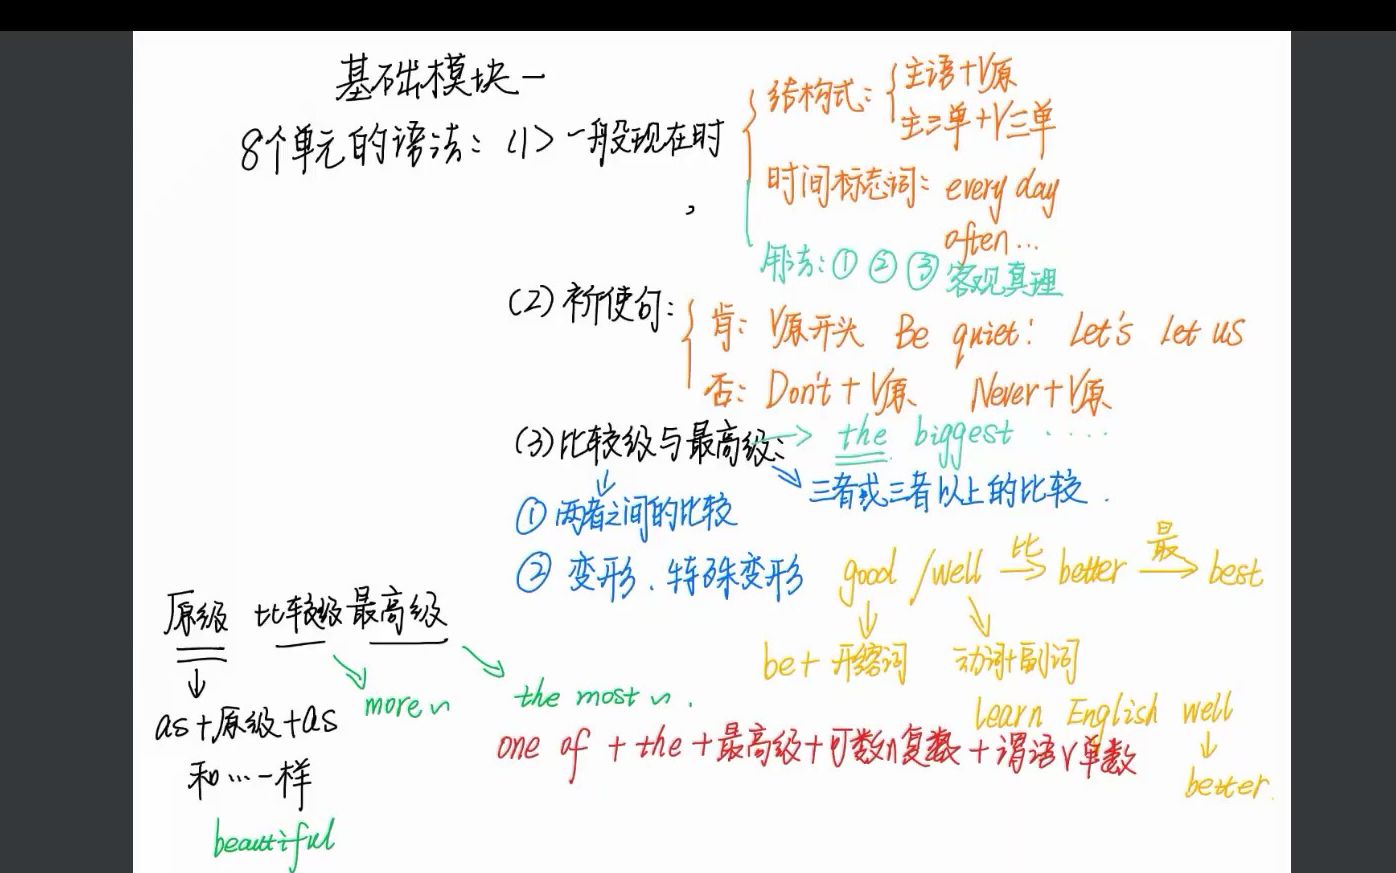 基础模块一
8个单元的语法：〈1〉一般现在时
结构式：
主语+V原
主三单+V三单
时间标志词：every day
often...
用法：① ② ③ 客观真理
(2) 祈使句：
肯：V原开头 Be quiet! Let's let us
否：Don't + V原 Never + V原
(3) 比较级与最高级： → the biggest ····
三者或三者以上的比较.
① 两者之间的比较
② 变形、特殊变形
good /well 比 → better 最 → best
be + 形容词 动词+副词
learn English well
better.
原级 比较级 最高级
more ~ the most ~.
as+原级+as
和…一样
beautiful
one of + the + 最高级 + 可数n复数 + 谓语V单数